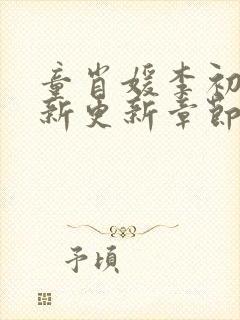 童肖媛李初
新更新章節
予頃